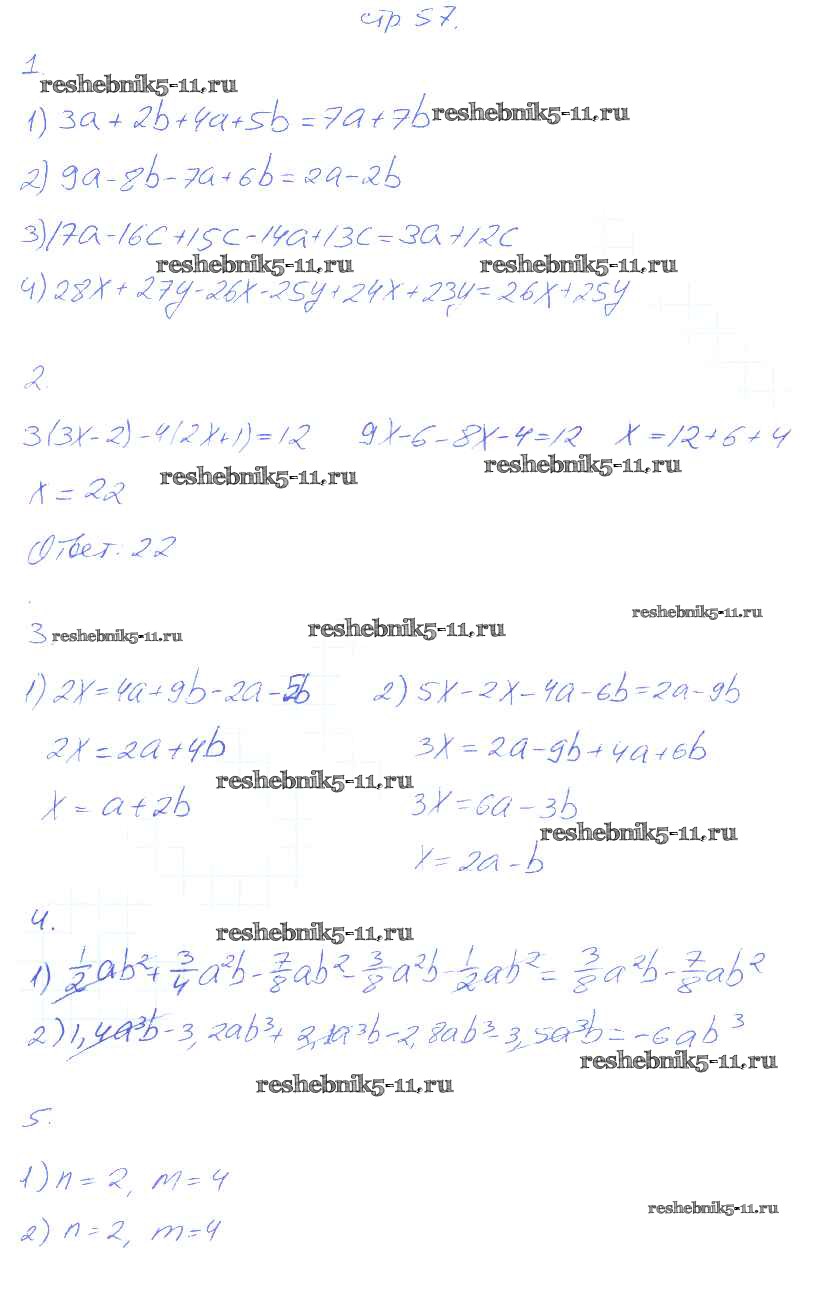 стр 57.
1.
reshebnik5-11.ru
1) 3a + 2b + 4a + 5b = 7a + 7b
reshebnik5-11.ru
2) 9a - 8b - 7a + 6b = 2a - 2b
3) 17a - 16c + 15c - 14a + 13c = 3a + 12c
reshebnik5-11.ru reshebnik5-11.ru
4) 28x + 27y - 26x - 25y + 24x + 23y = 26x + 25y
2.
3(3x - 2) - 4(2x + 1) = 12 9x - 6 - 8x - 4 = 12 x = 12 + 6 + 4
reshebnik5-11.ru reshebnik5-11.ru
x = 22
Ответ: 22
reshebnik5-11.ru
3. reshebnik5-11.ru reshebnik5-11.ru
1) 2x = 4a + 9b - 2a - 5b 2) 5x - 2x - 4a - 6b = 2a - 9b
2x = 2a + 4b 3x = 2a - 9b + 4a + 6b
reshebnik5-11.ru
x = a + 2b 3x = 6a - 3b
reshebnik5-11.ru
x = 2a - b
4.
reshebnik5-11.ru
1) 1/2 ab² + 3/4 a²b - 7/8 ab² - 3/8 a²b - 1/2 ab² = 3/8 a²b - 7/8 ab²
2) 1,4a³b - 3,2ab³ + 2,1a³b - 2,8ab³ - 3,5a³b = -6ab³
reshebnik5-11.ru
reshebnik5-11.ru
5.
1) n = 2, m = 4
reshebnik5-11.ru
2) n = 2, m = 4